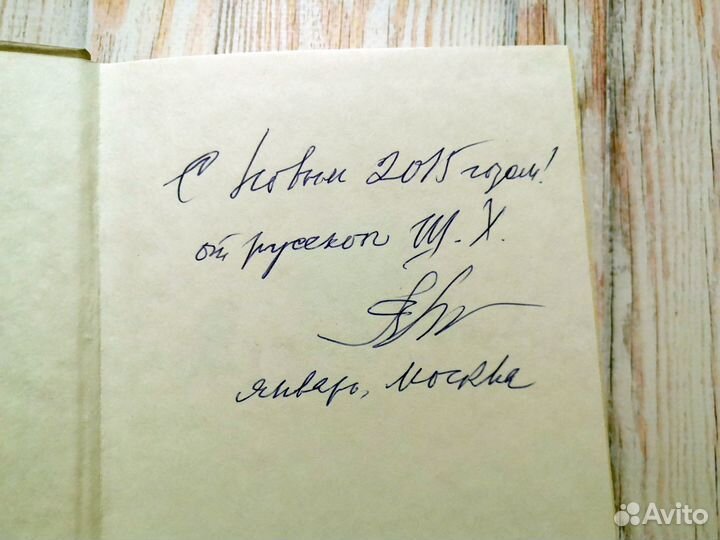 С Новым 2015 годом!
от русской Ш.Х.
январь, Москва
Avito